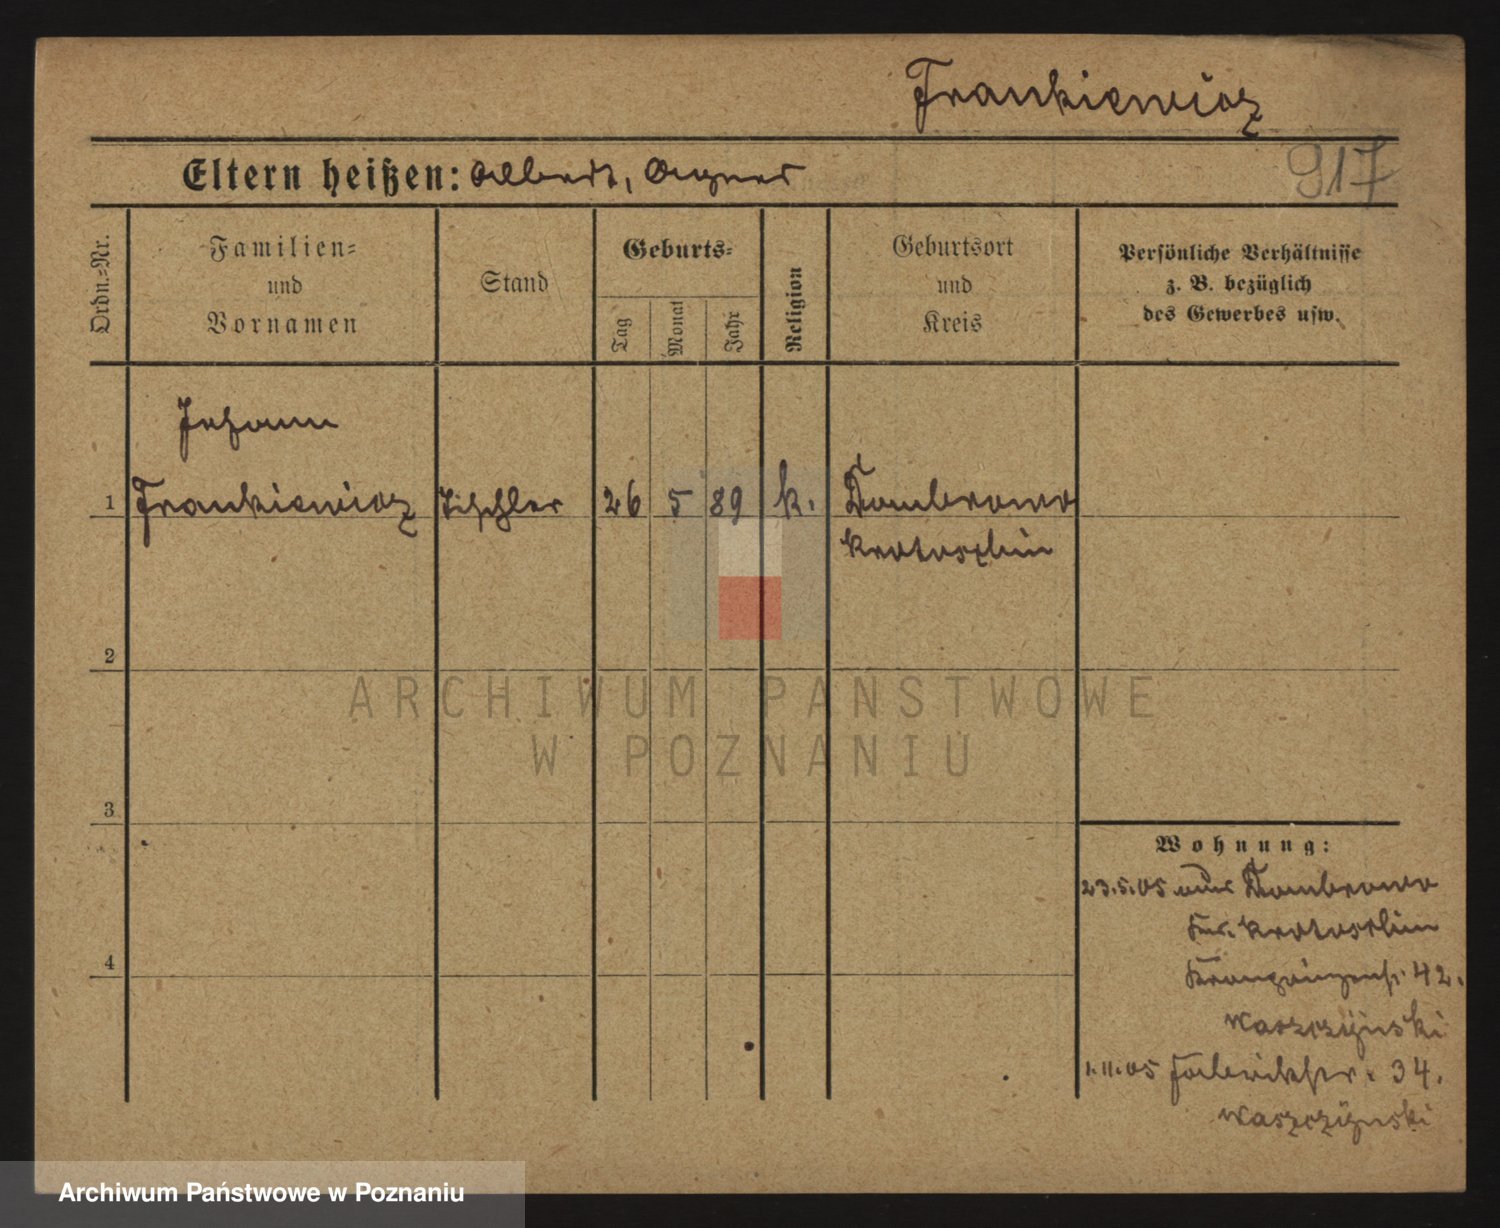 Frankiewicz
Eltern heißen: Albert, Agnes
917
Ordn.-Nr.
Familien-
und
Vornamen
Stand
Geburts-
Tag
Monat
Jahr
Religion
Geburtsort
und
Kreis
Persönliche Verhältnisse
z. B. bezüglich
des Gewerbes usw.
Johann
1 Frankiewicz Tischler 26 5 89 k. Dombrowo
Krotoschin
2
ARCHIWUM PAŃSTWOWE
W POZNANIU
3
4
Wohnung:
23.5.05 aus Dombrowo
Krs. Krotoschin
Kronprinzenstr. 42.
Waszczynski
1.11.05 Fabrikstr. 34.
Waszczynski
Archiwum Państwowe w Poznaniu